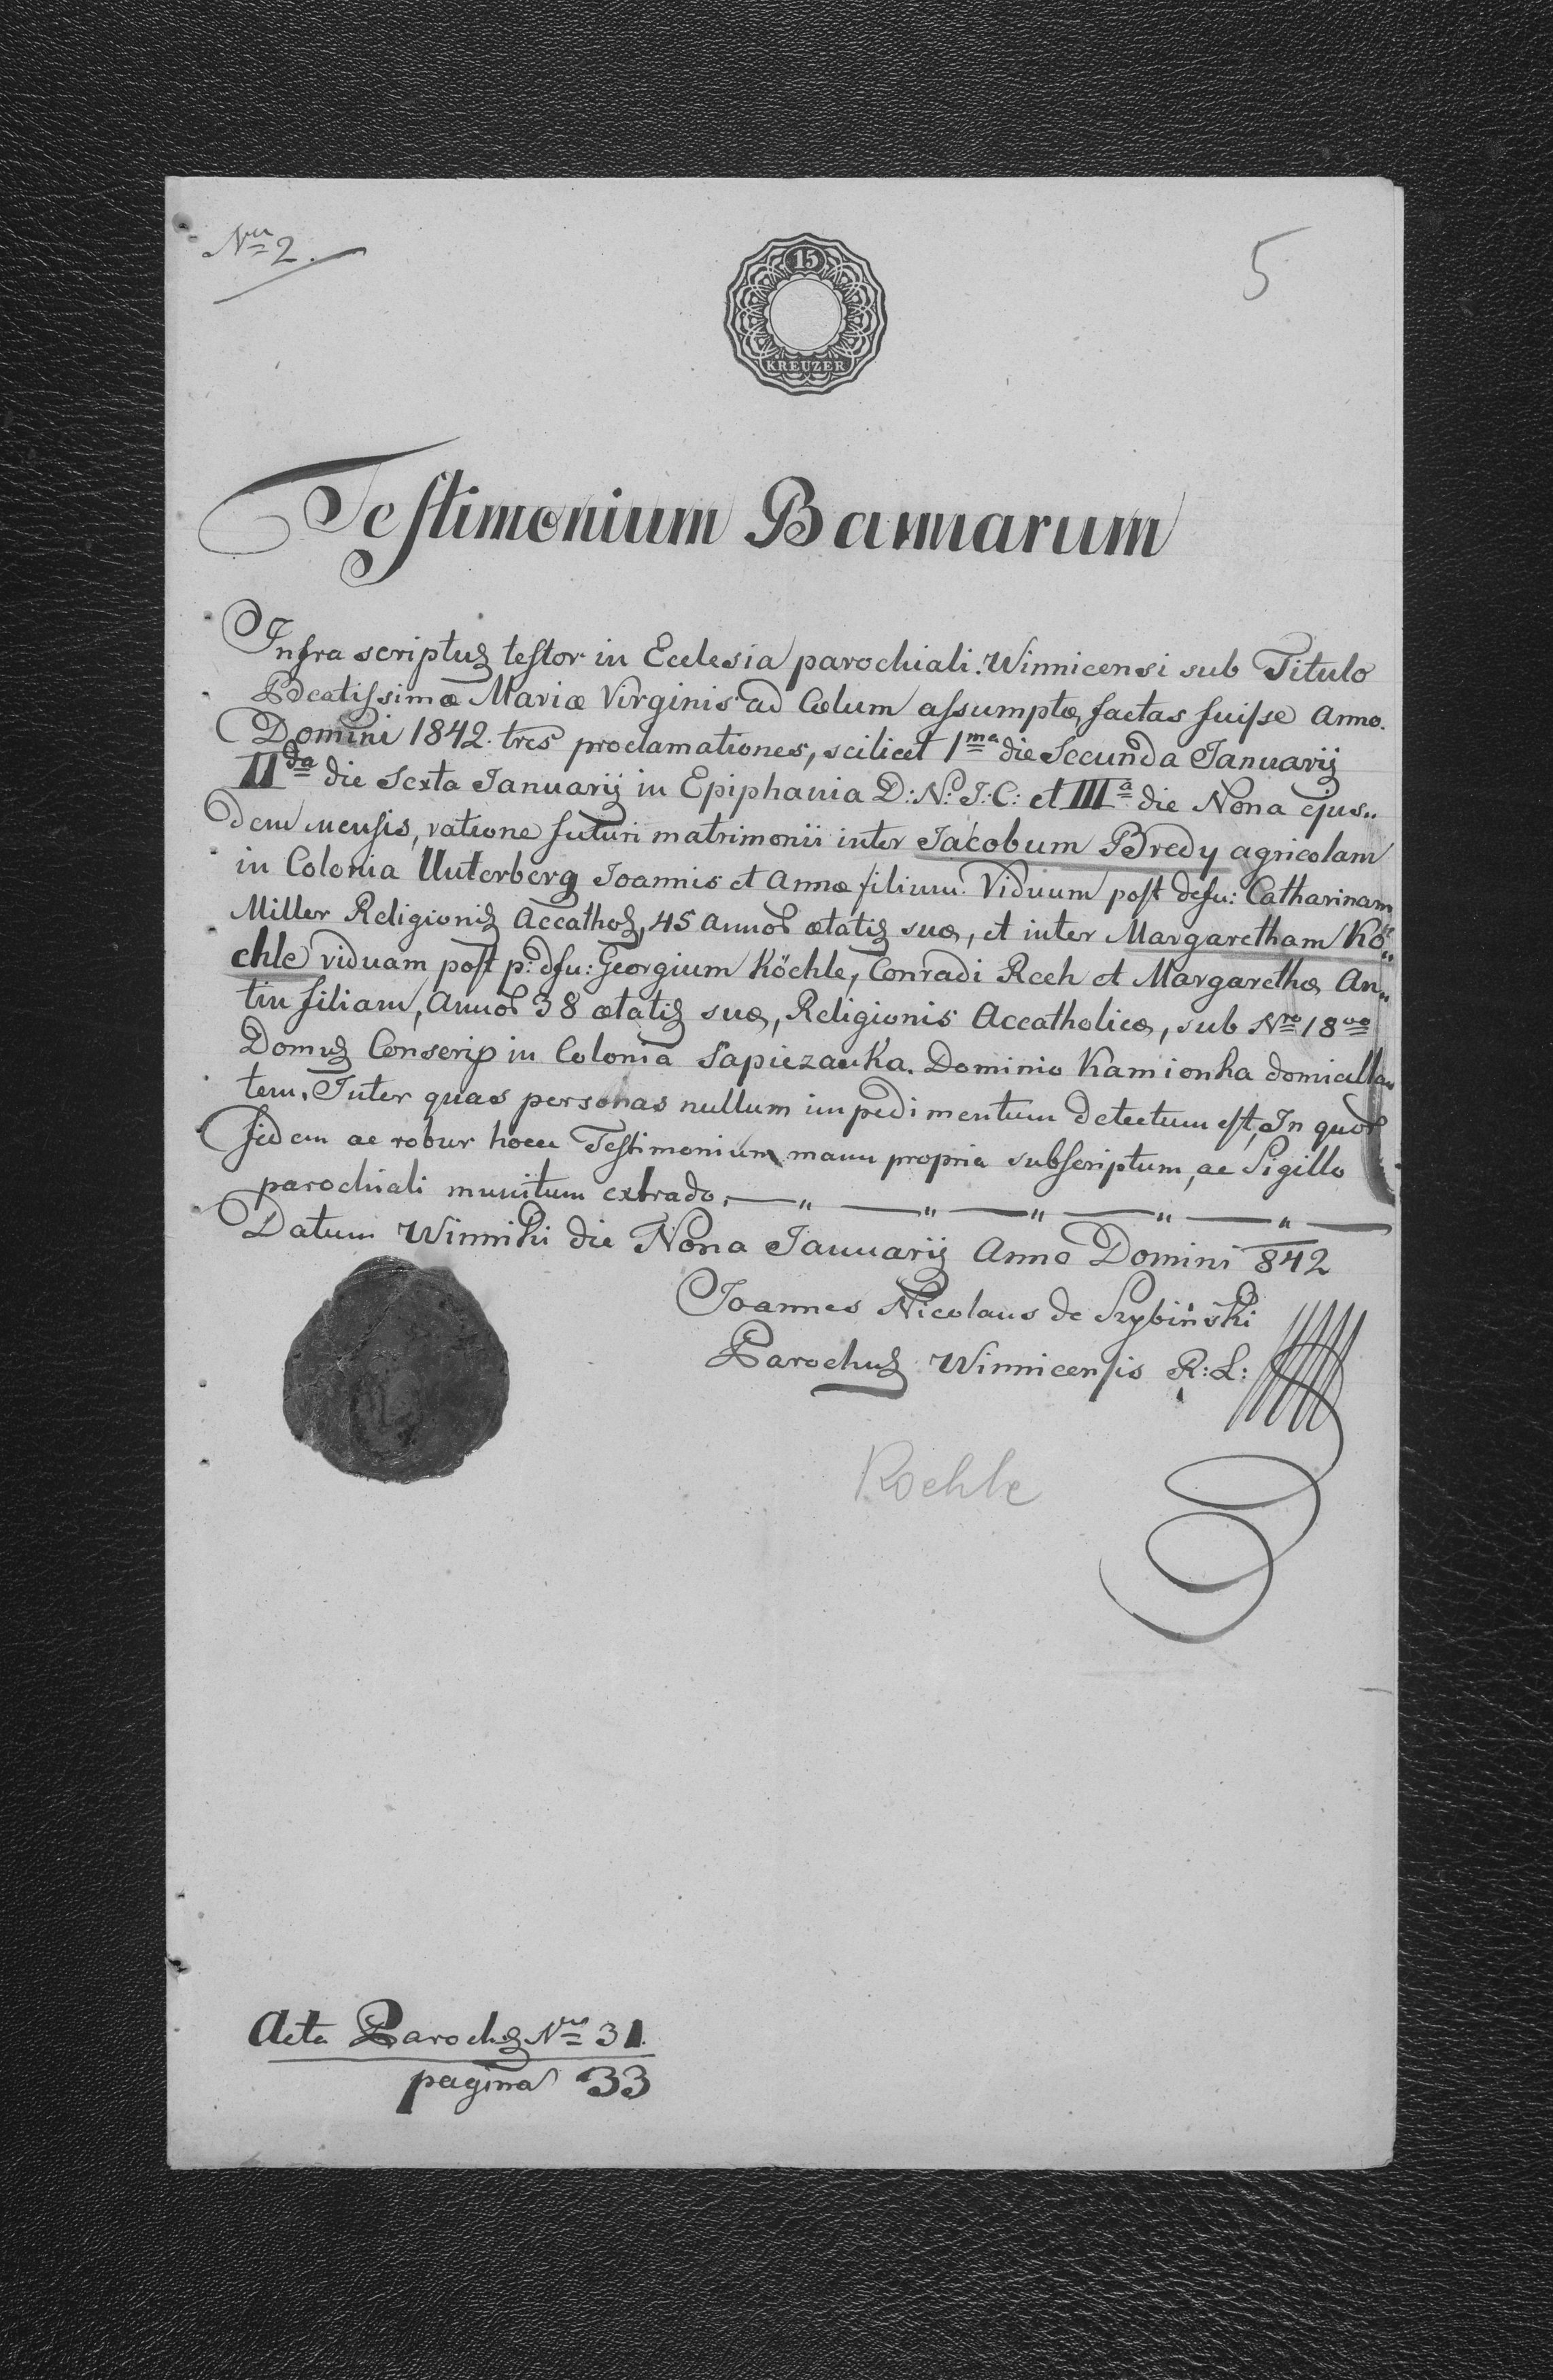 Nru 2.
5
15
KREUZER
Testimonium Bannarum
Infra scriptus testor in Ecclesia parochiali Winnicensi sub Titulo
Beatissimæ Mariæ Virginis ad Cœlum assumptæ, factas fuisse Anno
Domini 1842. tres proclamationes, scilicet 1ma die Secunda Januarij
IIda die Sexta Januarij in Epiphania D: N: J: C: et IIIa die Nona ejus„
dem mensis, ratione futuri matrimonii inter Jacobum Bredy agricolam
in Colonia Unterberg Joannis et Annæ filium. Viduum post defu: Catharinam
Miller Religionis Accathol, 45 annor ætatis suæ, et inter Margaretham Kö„
chle viduam post p: dfu: Georgium Köchle, Conradi Rech et Margarethæ An„
tin filiam, Annor 38 ætatis suæ, Religionis Accatholicæ, sub Nro 18vo
Domus Conscrip in Colonia Sapiezanka. Dominio Kamionka domicilian
tem. Inter quas personas nullum impedimentum detectum est, In quor
fidem ac robur hocce Testimonium manu propria subscriptum, ac Sigillo
parochiali munitum extrado. — „ — „ — „ — „ — „ —
Datum Winniki die Nona Januarij Anno Domini 842
Joannes Nicolaus de Szybiński
Parochus Winnicensis R: L:
Koehle
Acta Paroch. Nrus 31.
pagina 33